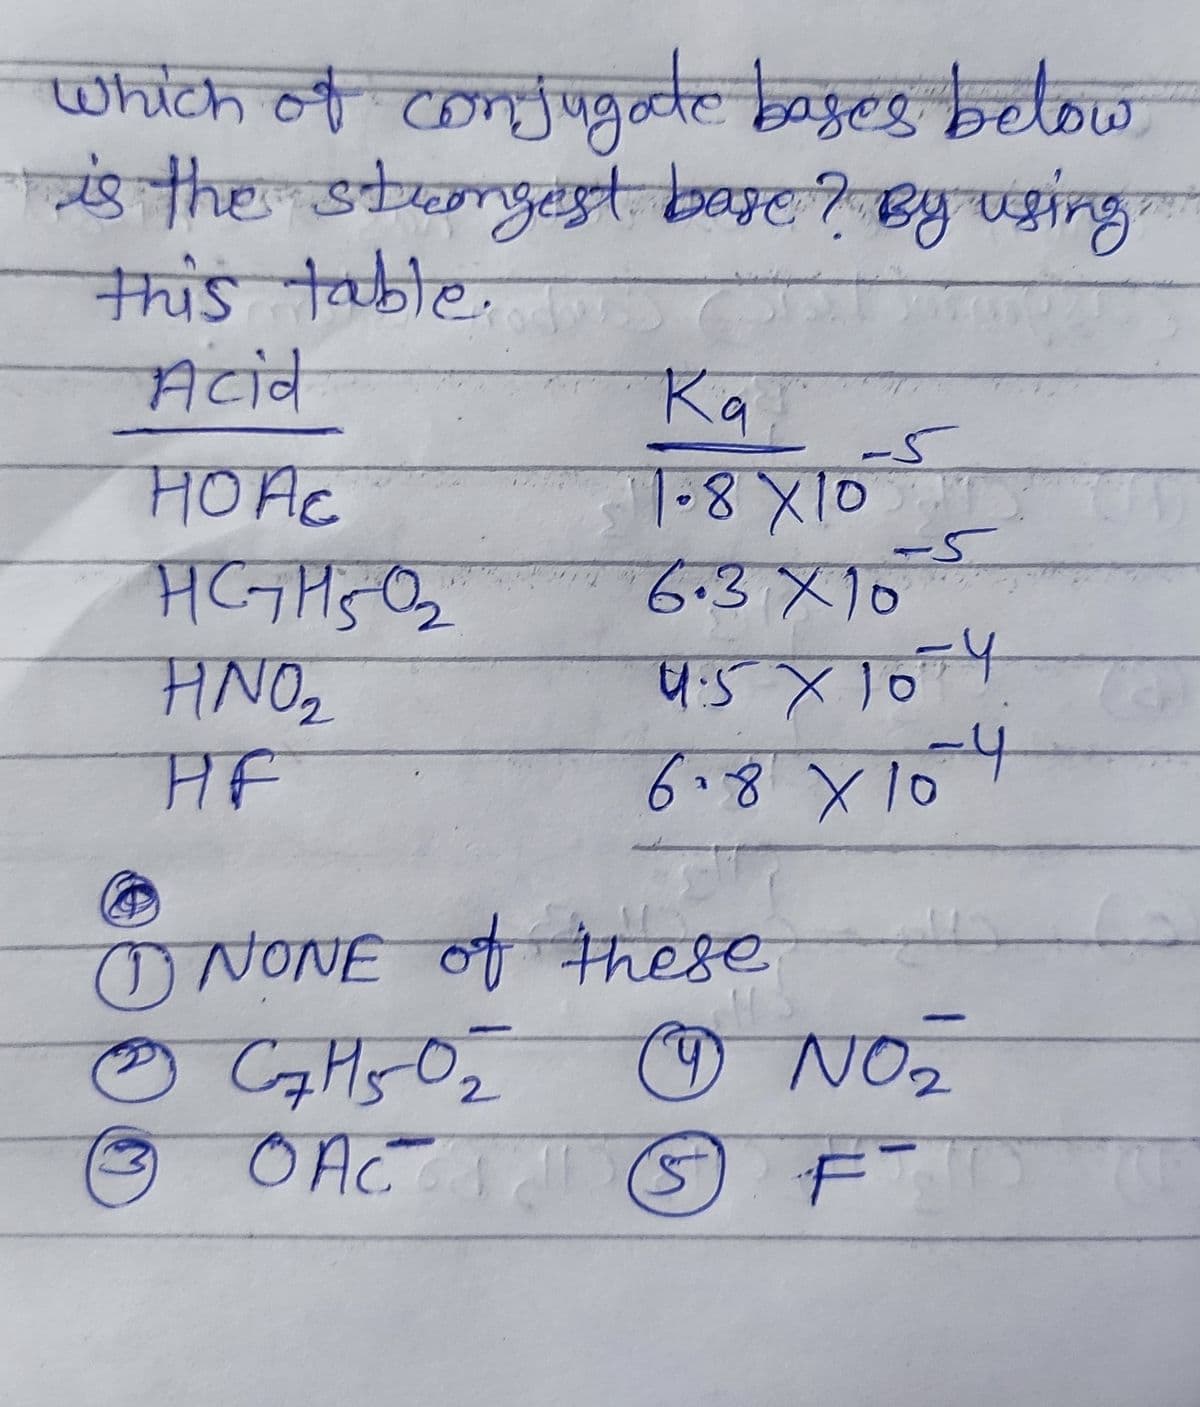 which of conjugate bases below
is the strongest base? By using
this table.
Acid Ka
HOAc 1.8 X10⁻⁵
HC7H5O2 6.3 X10⁻⁵
HNO2 4.5 X 10⁻⁴
HF 6.8 X 10⁻⁴
① NONE of these
② C7H5O2⁻ ④ NO2⁻
③ OAC⁻ ⑤ F⁻